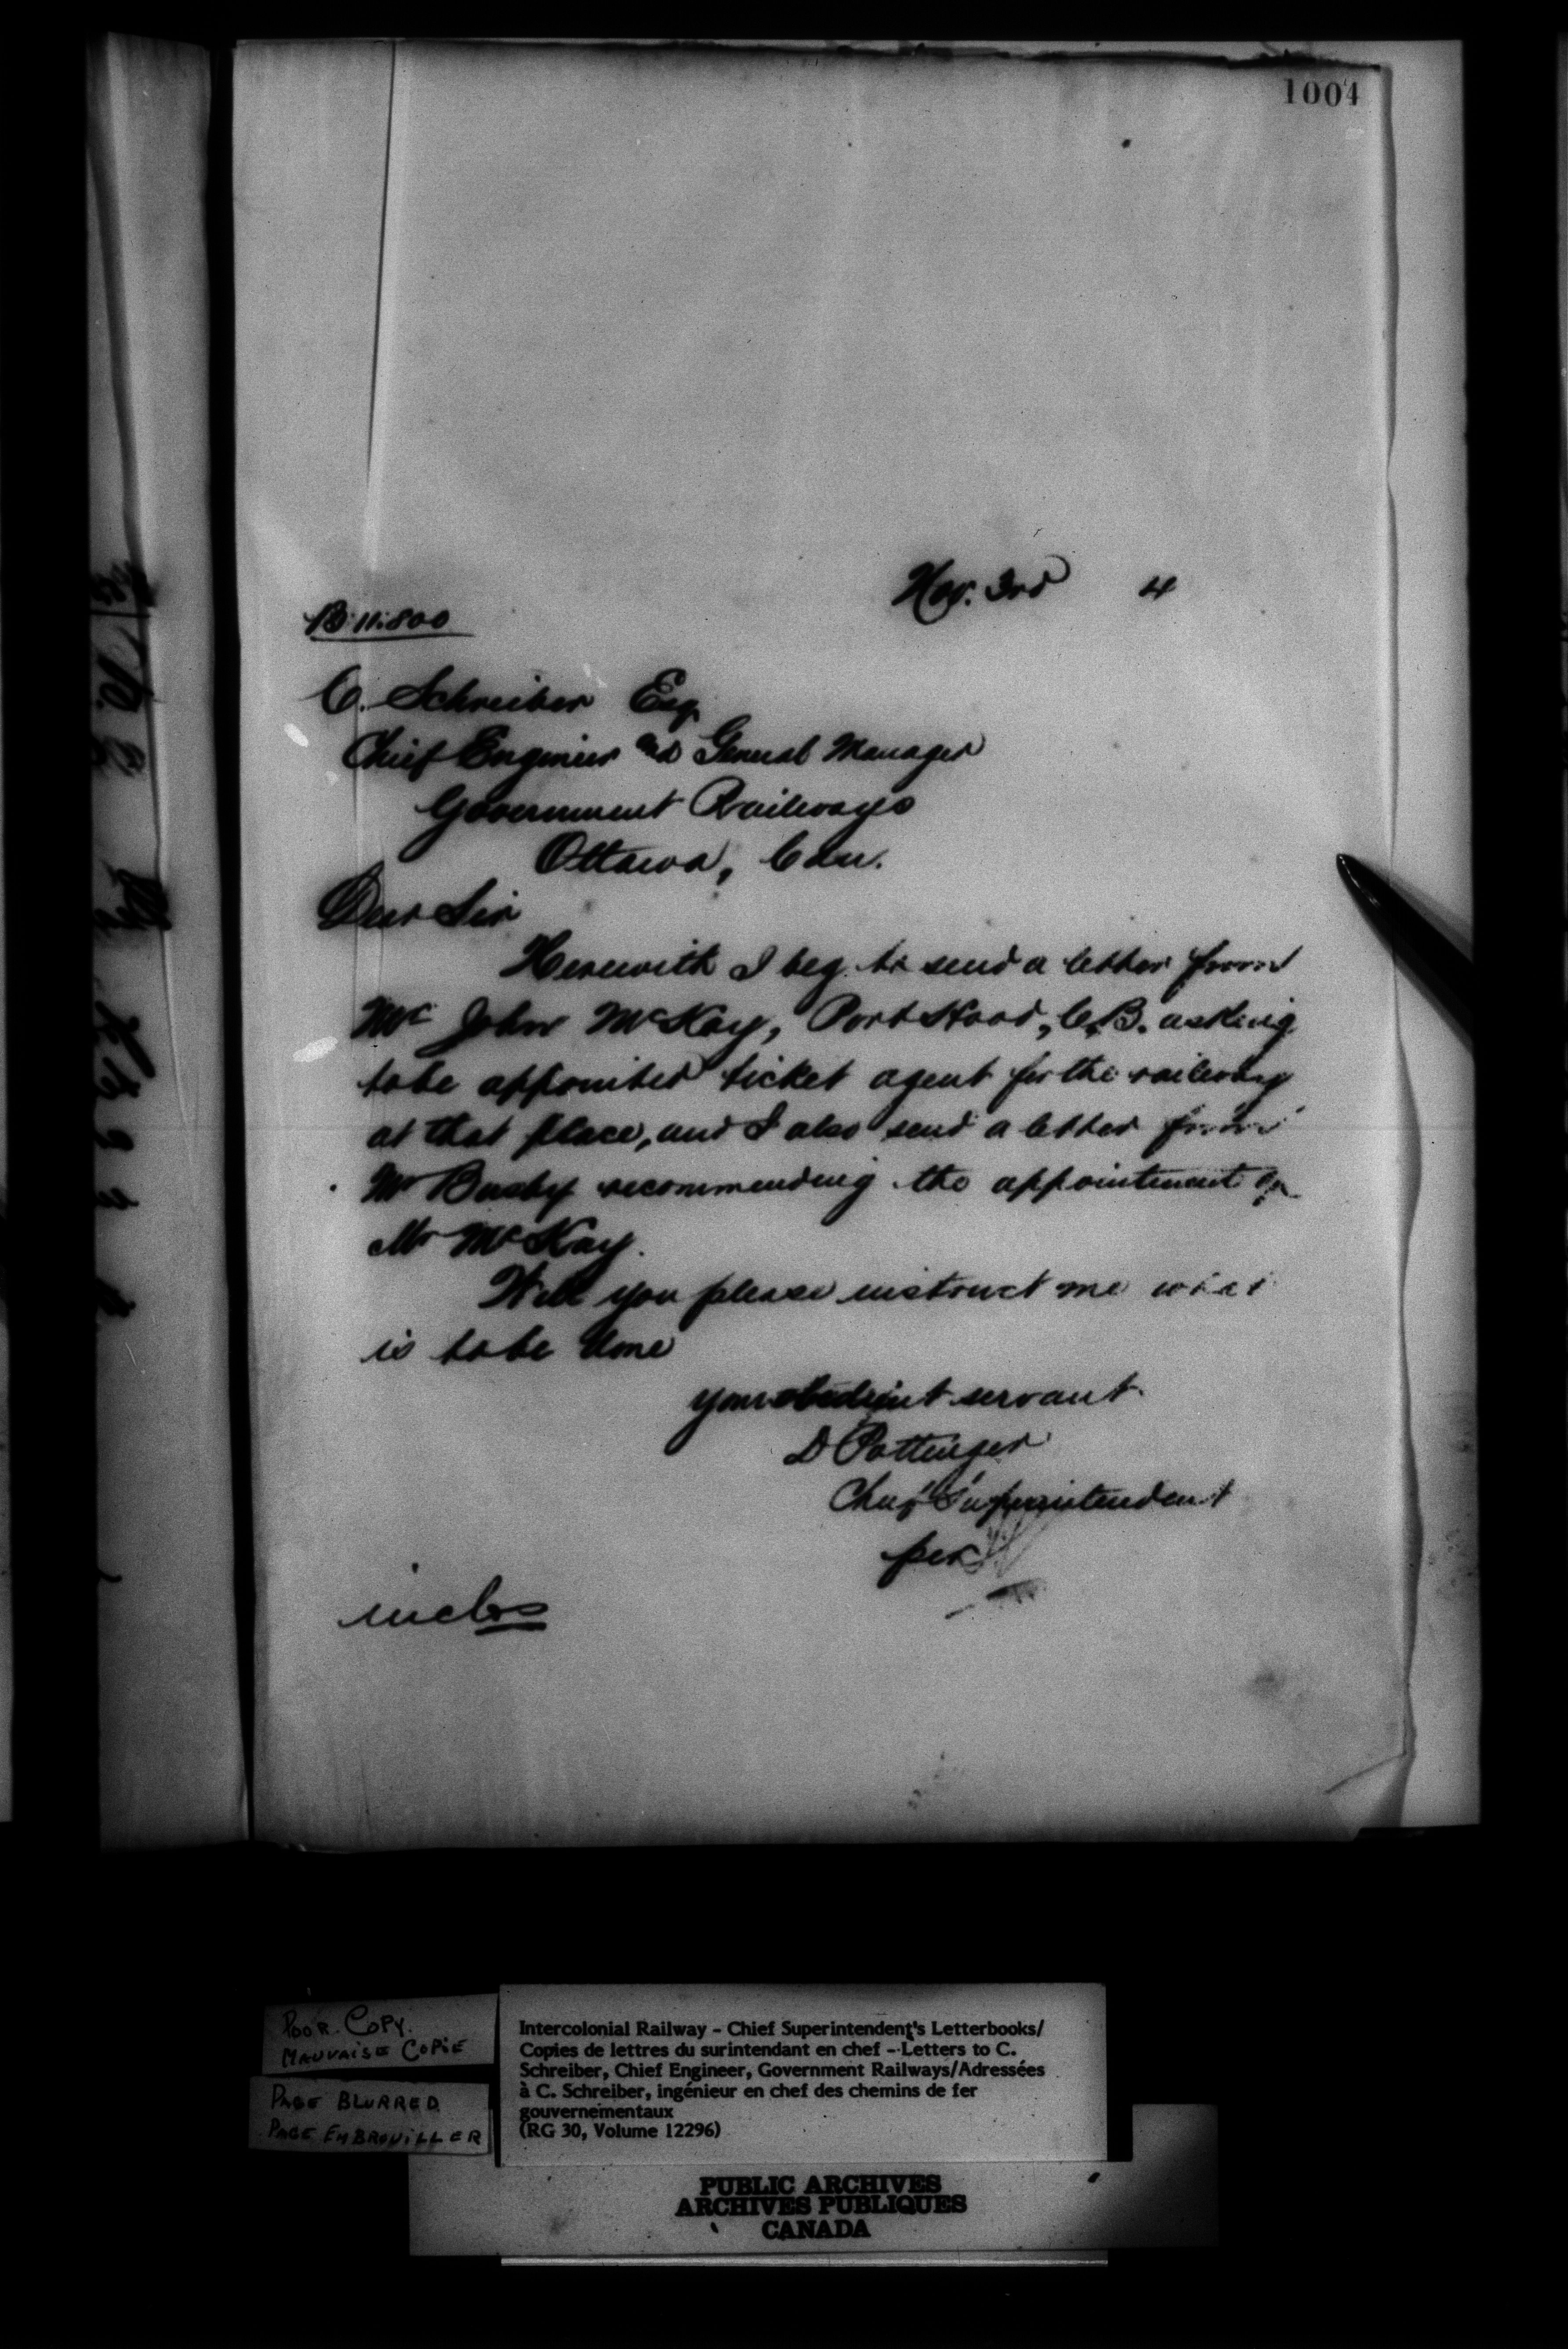 1004
Nov. 3rd 4
B. 11.800
C. Schreiber Esq
Chief Engineer and General Manager
Government Railways
Ottawa, Can.
Dear Sir
Herewith I beg to send a letter from
Mr John McKay, Port Hood, C.B. asking
to be appointed ticket agent for the railway
at that place, and I also send a letter from
Mr Busby recommending the appointment of
Mr McKay.
Will you please instruct me what
is to be done
your obedient servant
D Pottinger
Chief Superintendent
per
incls
POOR COPY.
MAUVAISE COPIE
PAGE BLURRED
PAGE EMBROUILLER
Intercolonial Railway - Chief Superintendent's Letterbooks/
Copies de lettres du surintendant en chef - Letters to C.
Schreiber, Chief Engineer, Government Railways/Adressées
à C. Schreiber, ingénieur en chef des chemins de fer
gouvernementaux
(RG 30, Volume 12296)
PUBLIC ARCHIVES
ARCHIVES PUBLIQUES
CANADA